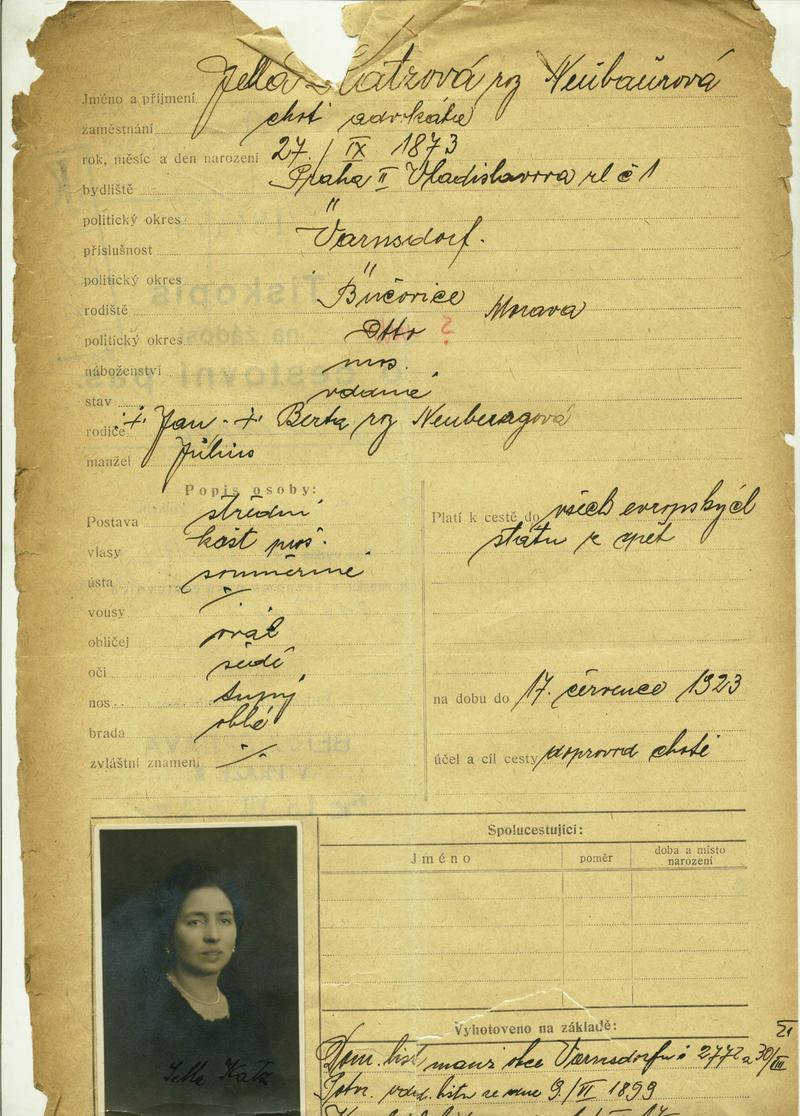 Jméno a příjmení Jella Katzová roz Neubaurová
zaměstnání choť advokáta
rok, měsíc a den narození 27./IX 1873
bydliště Praha II Vladislavova ul č 1
politický okres "
příslušnost Varnsdorf.
politický okres "
rodiště Bučovice Morava
politický okres Otto ?
náboženství mos.
stav vdaná
rodiče Jan Berta roz Neuburgová
manžel Julius
Popis osoby:
Postava střední
vlasy kašt
ústa souměrné
vousy
obličej ovál
oči šedé
nos tupý
brada oblé
zvláštní znamení
Platí k cestě do všech evropských
států a zpět
na dobu do 17. července 1923
účel a cíl cesty doprovod chotě
Spolucestující:
Jméno poměr doba a místo narození
Vyhotoveno na základě:
Dom. list obce Varnsdorfu č 2772 30/III
Potv. ze dne 9./VI 1899
Jella Katz
Tiskopis
na žádost
cestovní pas
V PRAZE